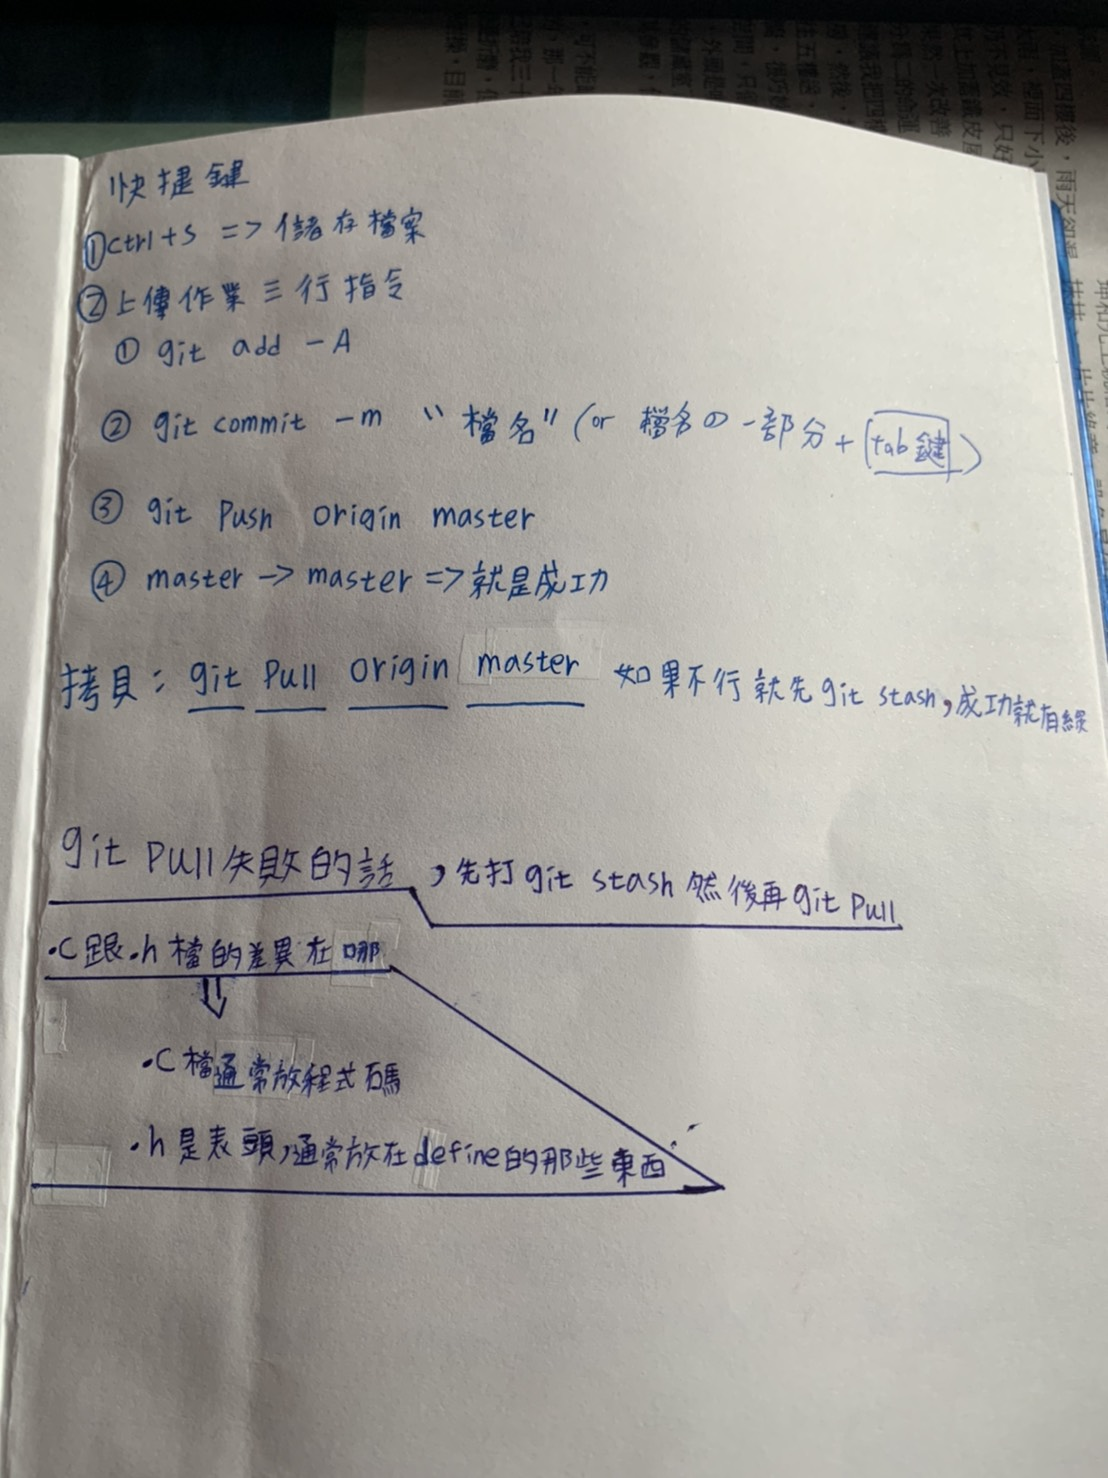 快捷鍵
①ctrl+s => 儲存檔案
②上傳作業三行指令
① git add -A
② git commit -m "檔名" (or 檔名の一部分+tab鍵)
③ git Push origin master
④ master -> master => 就是成功
拷貝: git Pull origin master 如果不行就先git stash,成功就有綠
git Pull失敗的話,先打git stash然後再git Pull
.C跟.h檔的差異在哪
.C檔通常放程式碼
.h是表頭,通常放在define的那些東西